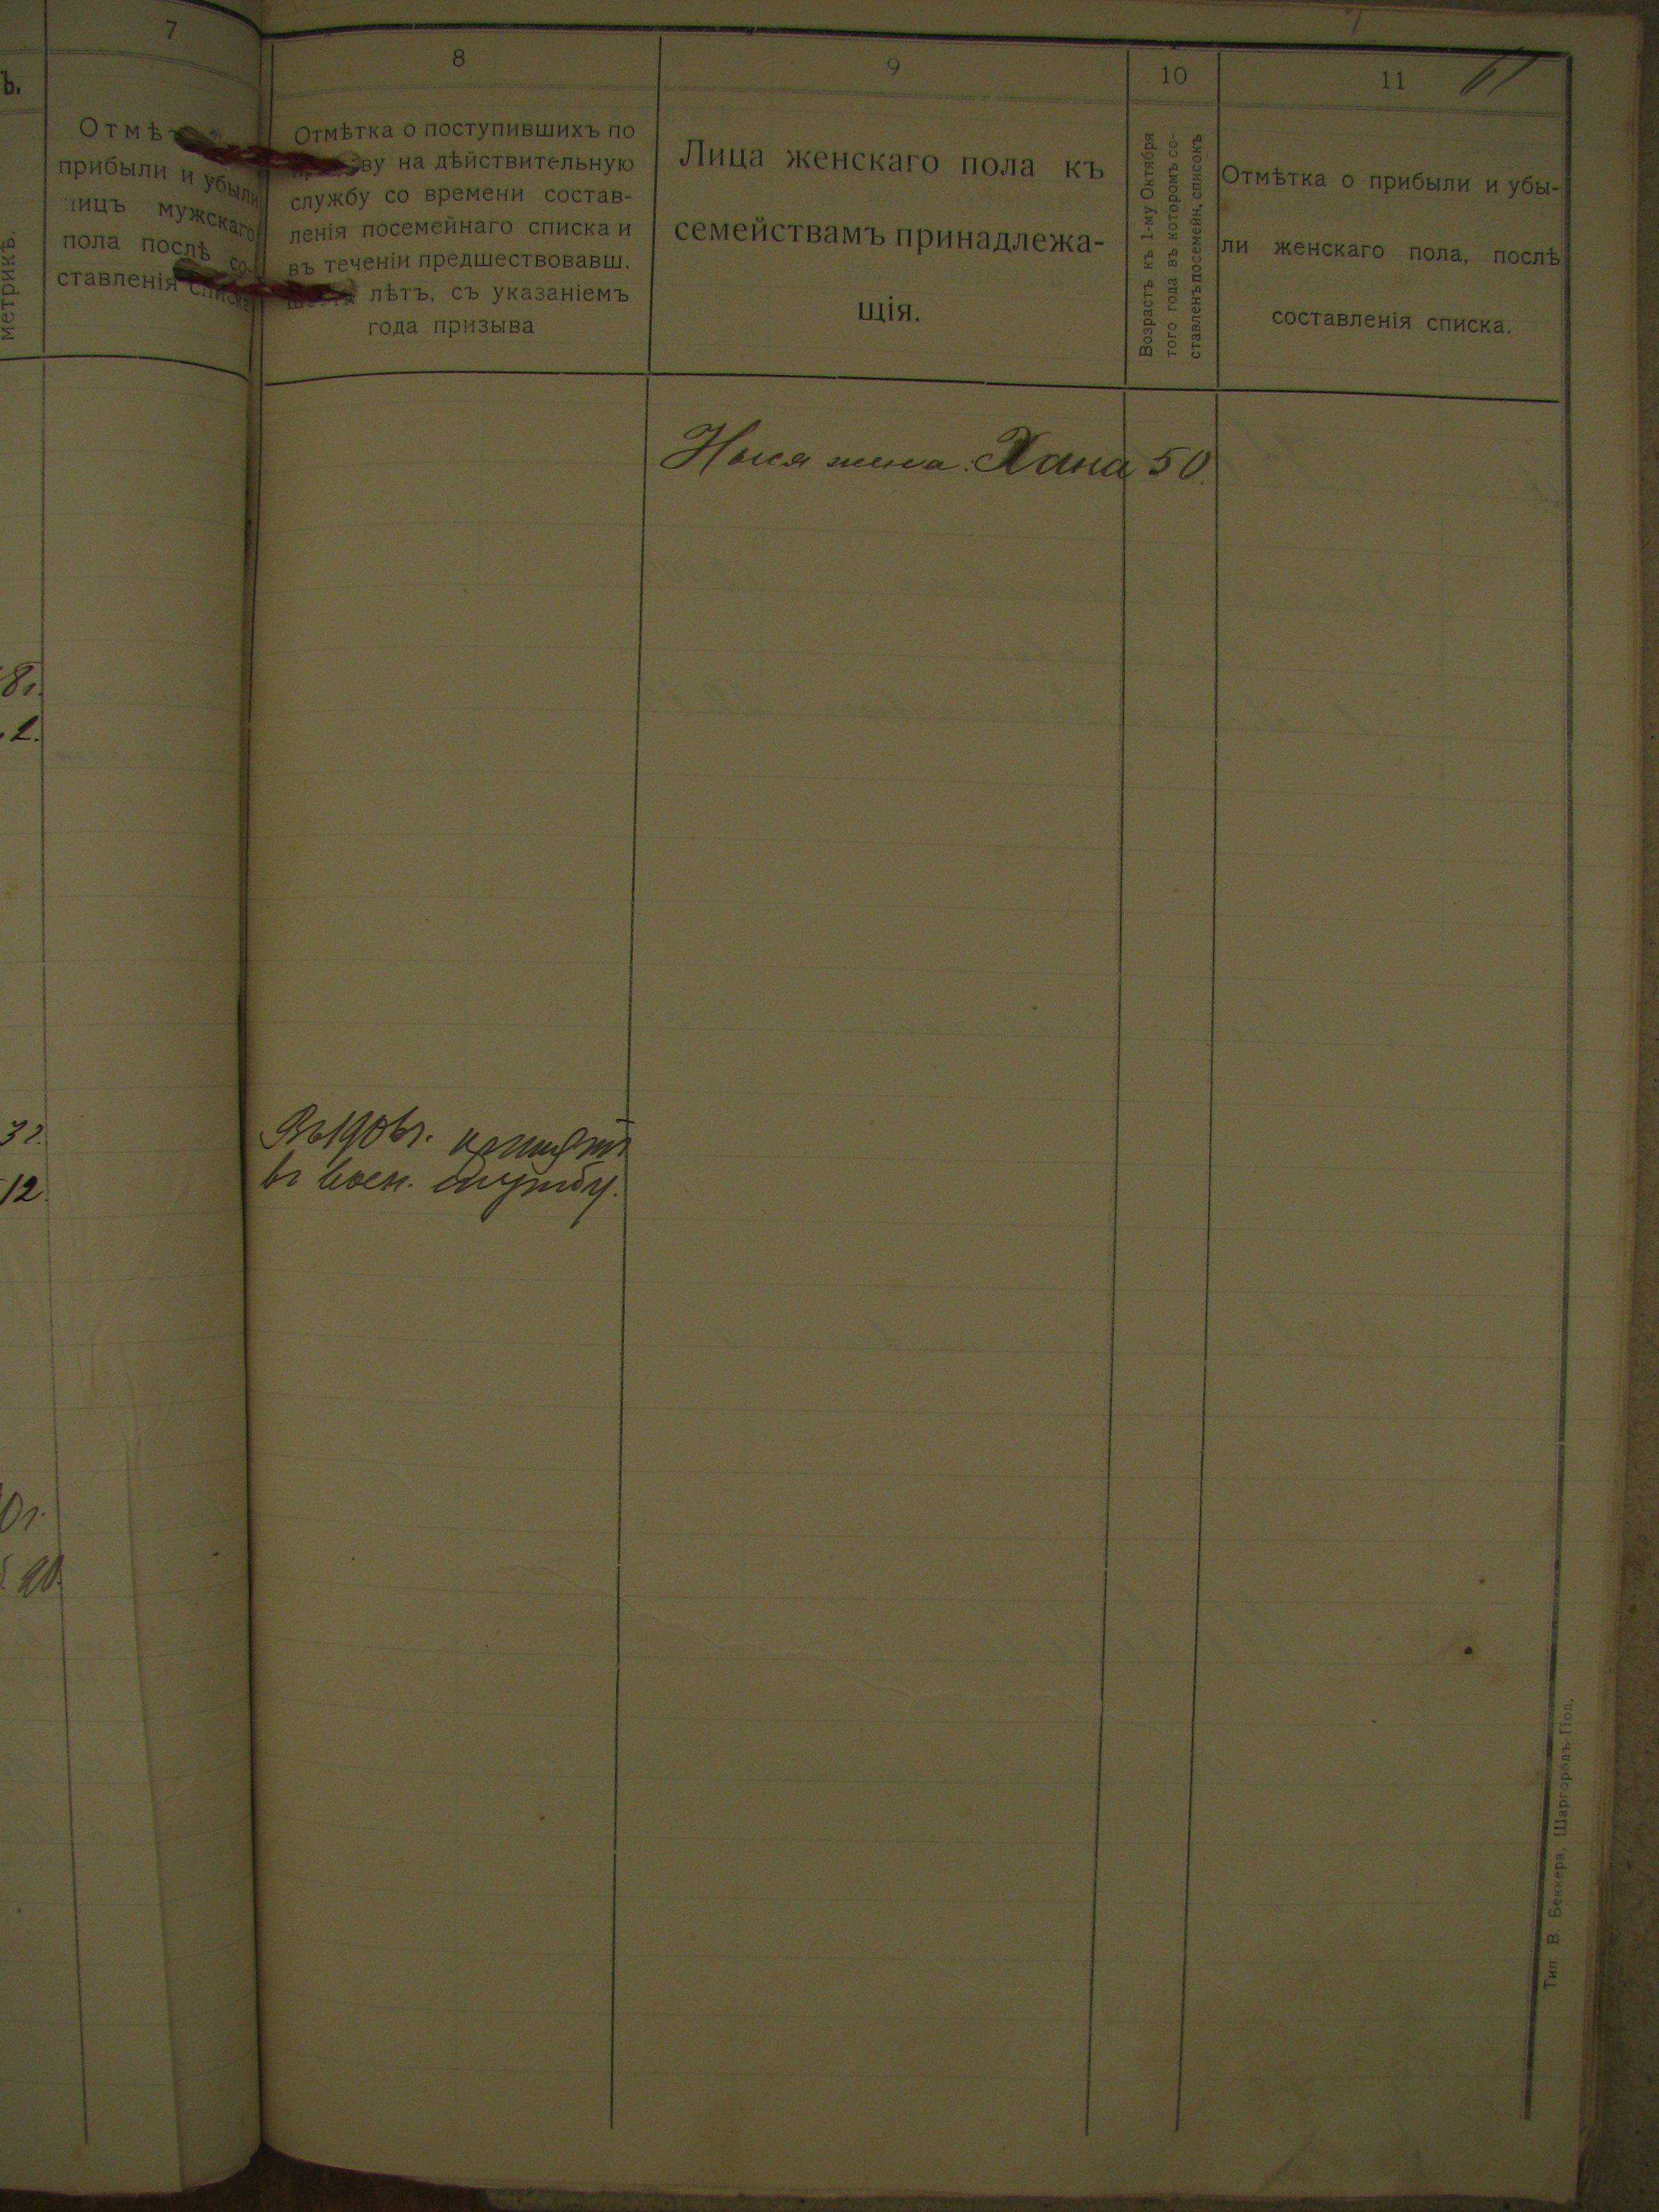 7
Отмѣ
прибыли и убыли
лицъ мужскаго
пола послѣ со-
ставленія списка
ъ.
метрикѣ.
8
Отмѣтка о поступившихъ по
ву на дѣйствительную
службу со времени состав-
ленія посемейнаго списка и
въ теченіи предшествовавш.
лѣтъ, съ указаніемъ
года призыва
9
Лица женскаго пола къ
семействамъ принадлежа-
щія.
10
Возрастъ къ 1-му Октября
того года въ которомъ со-
ставленъ посемейн. списокъ
11
61
Отмѣтка о прибыли и убы-
ли женскаго пола, послѣ
составленія списка.
жена: Хана 50.
8г.
2.
3г.
12.
Въ 1906г. принятъ
въ воен. службу.
0г.
20.
Тип. В. Беккера, Шаргородъ-Под.